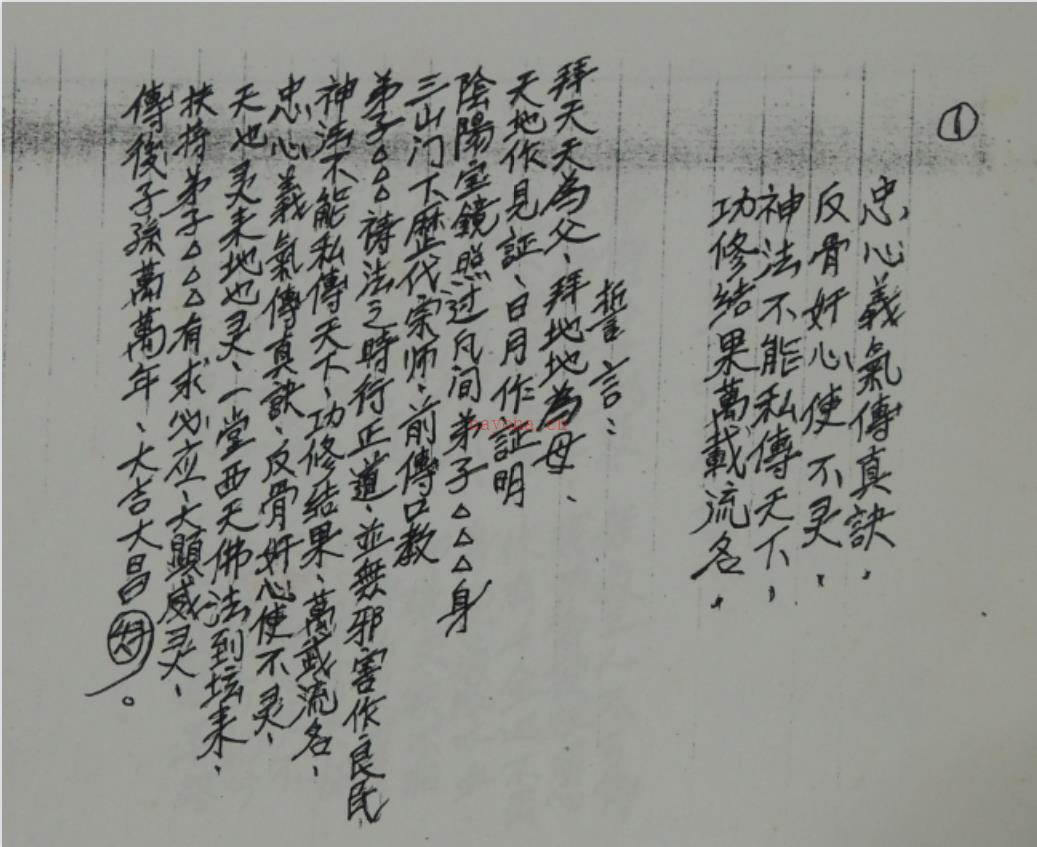 ①
忠心義氣傳真訣.
反骨奸心使不灵.
神法不能私傳天下.
功修結果萬載流名.
誓言:
拜天天為父、拜地地為母、
天地作見証、日月作証明
陰陽宝鏡照过凡间弟子△△△身
三山门下歷代宗师、前傳口教
弟子△△△禱法之時行正道、並無邪害作良民
神法不能私傳天下、功修結果、萬載流名、
忠心義氣傳真訣、反骨奸心使不灵、
天也灵来地也灵、一堂西天佛法到坛来、
扶持弟子△△△有求必应、大顯威灵、
傳後子孫萬萬年、大吉大昌
。
nayona.cn